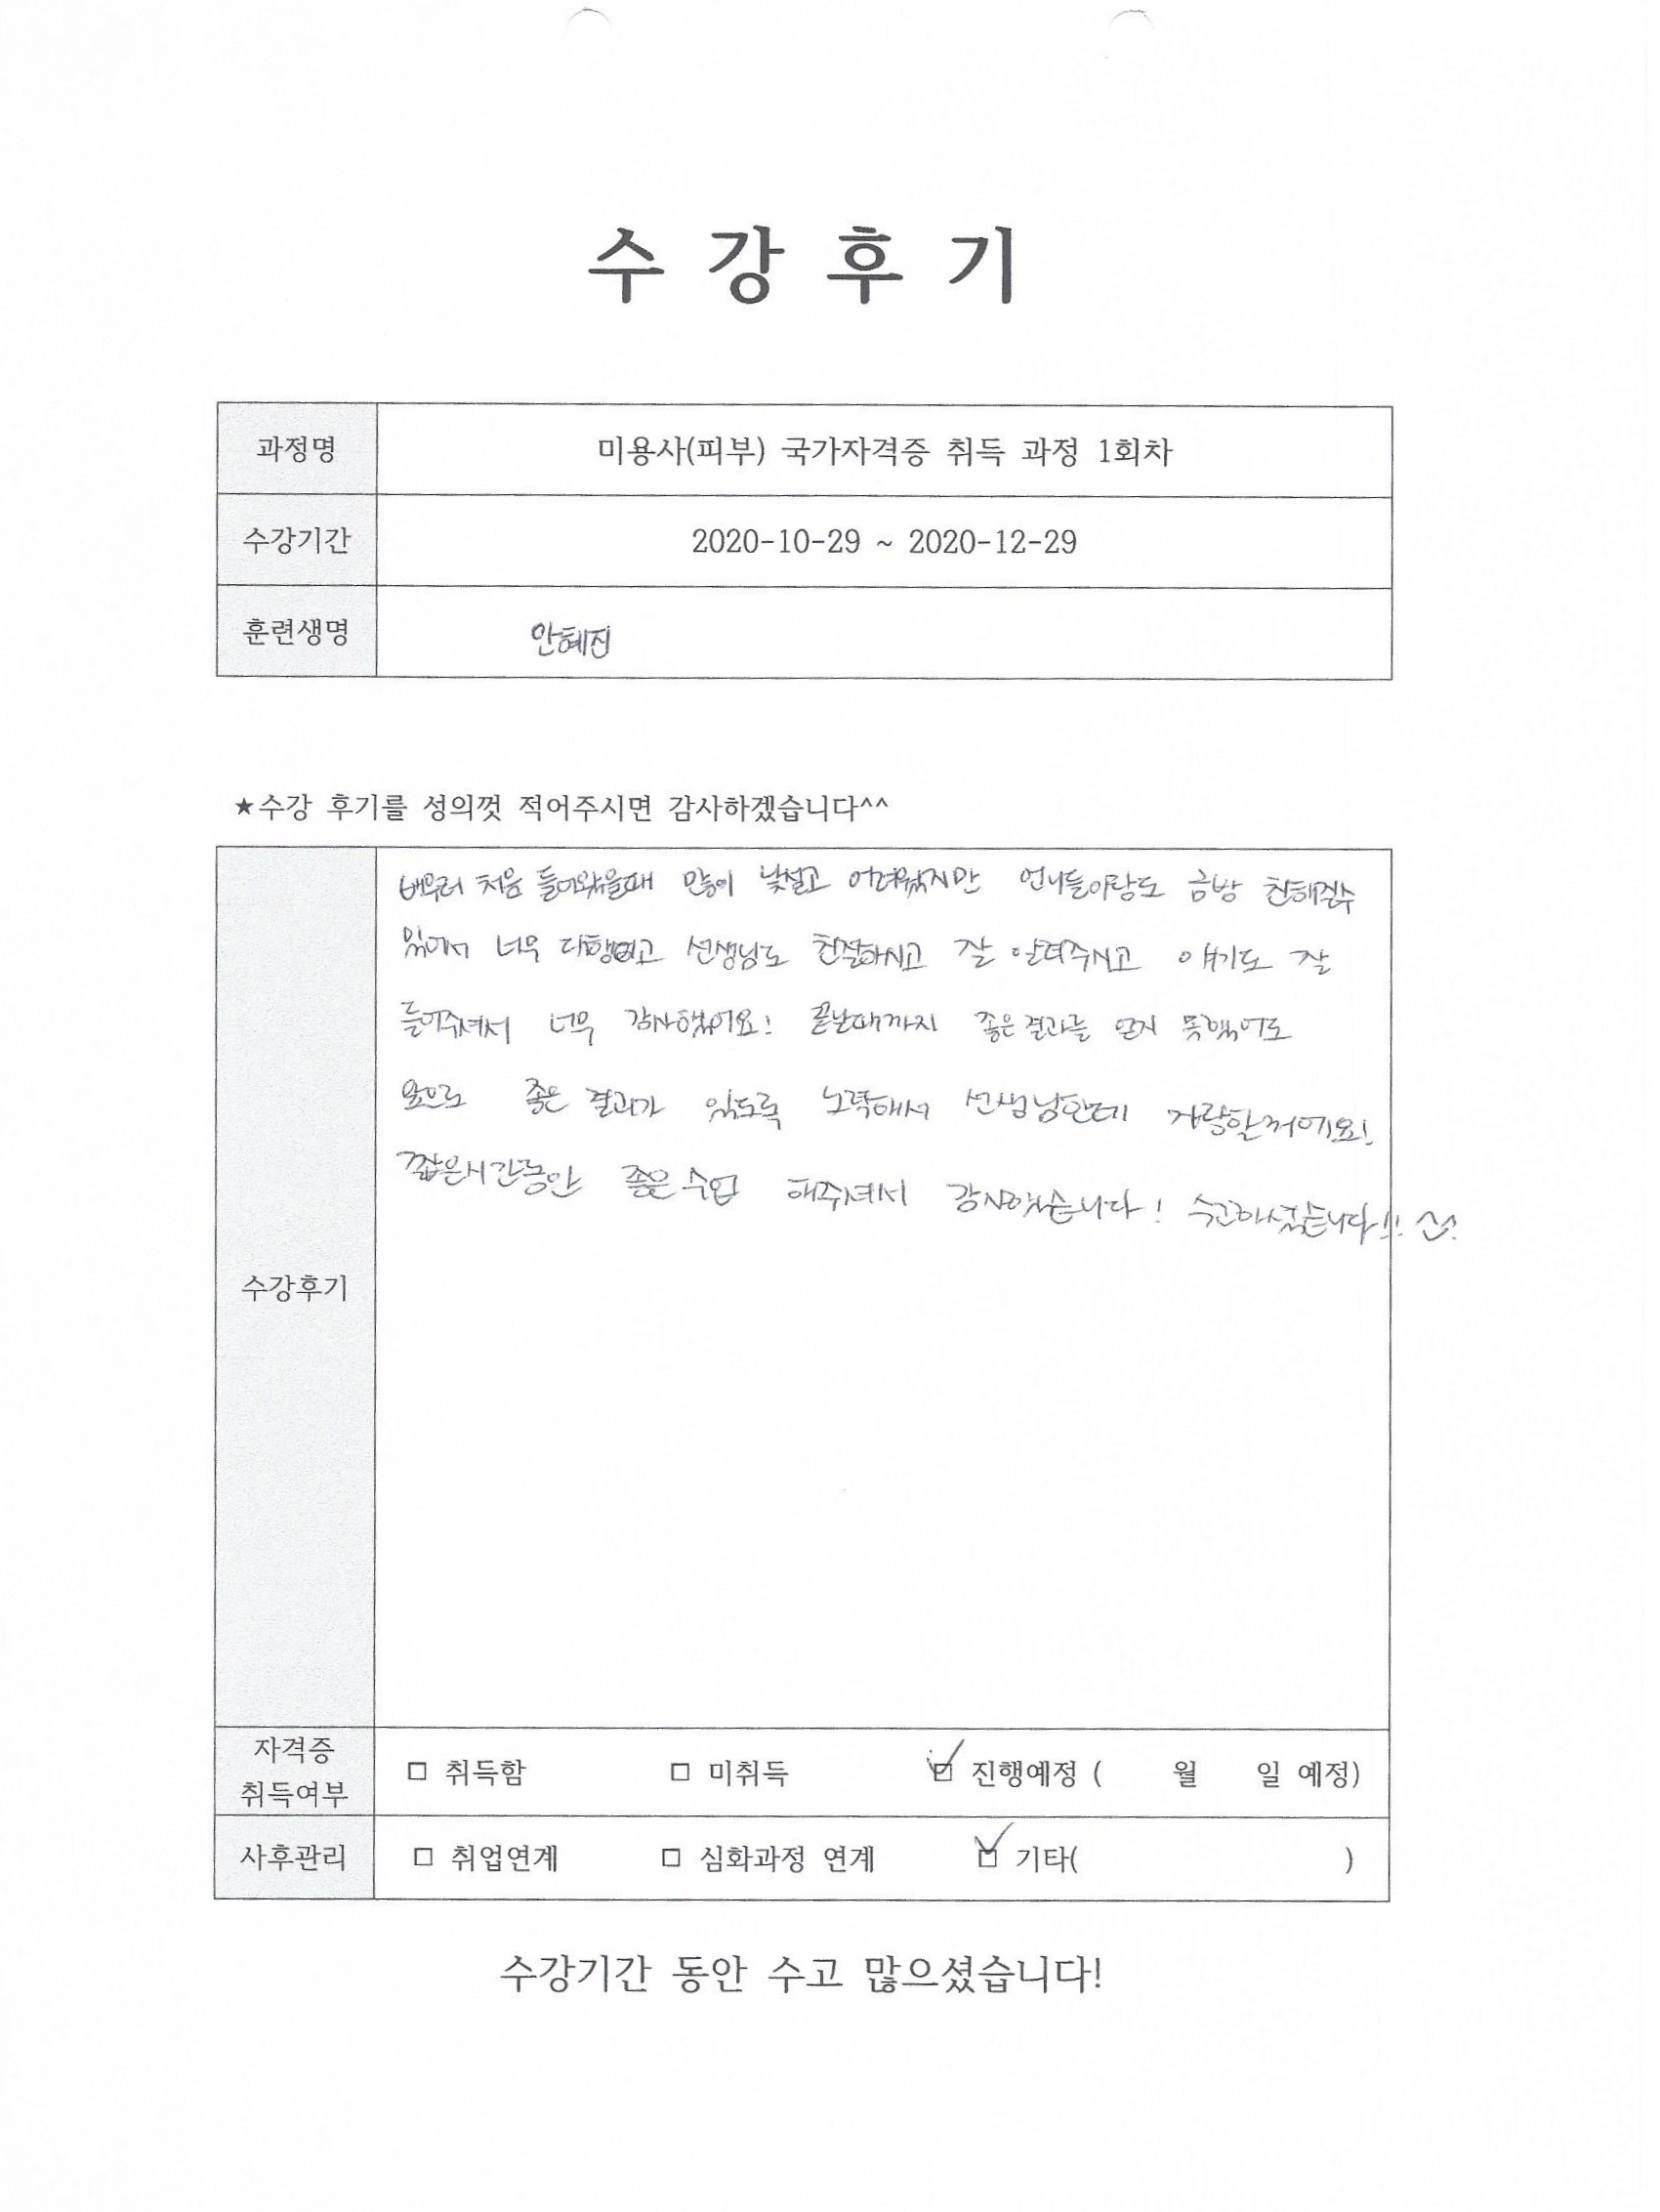 수 강 후 기
과정명 미용사(피부) 국가자격증 취득 과정 1회차
수강기간 2020-10-29 ~ 2020-12-29
훈련생명 안혜진
★수강 후기를 성의껏 적어주시면 감사하겠습니다^^
배우러 처음 들어왔을때 많이 낯설고 어려웠지만 언니들이랑도 금방 친해질수
있어서 너무 다행였고 선생님도 친절하시고 잘 알려주시고 얘기도 잘
들어주셔서 너무 감사했어요! 끝날때까지 좋은결과를 얻지 못했어도
앞으로 좋은 결과가 있도록 노력해서 선생님한테 자랑할꺼에요!
짧은시간동안 좋은수업 해주셔서 감사했습니다! 수고하셨습니다!!!
수강후기
자격증
취득여부 □ 취득함 □ 미취득 ☑ 진행예정 ( 월 일 예정)
사후관리 □ 취업연계 □ 심화과정 연계 ☑ 기타( )
수강기간 동안 수고 많으셨습니다!